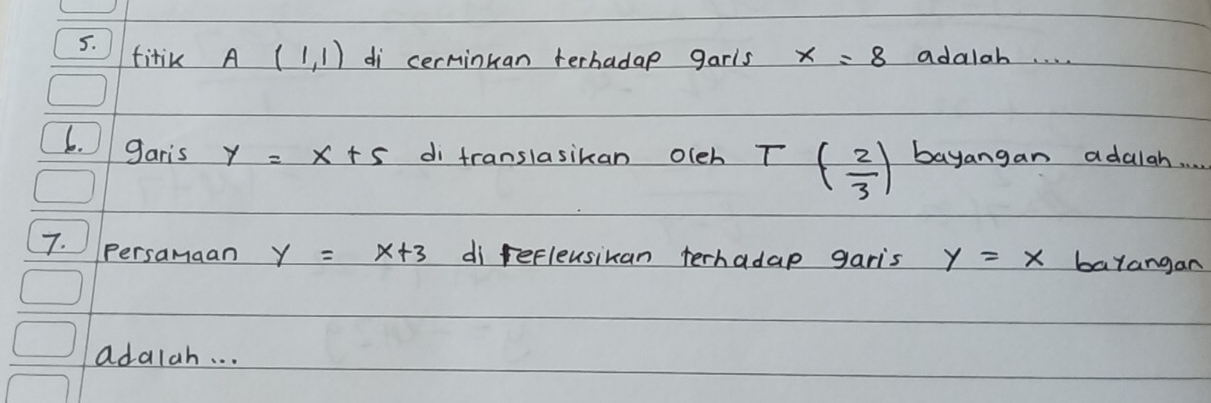 5. titik A (1,1) di cerminkan terhadap garis x = 8 adalah ....
6. garis y = x + 5 di translasikan oleh T (2/3) bayangan adalah.....
7. Persamaan y = x+3 di refleksikan terhadap garis y = x bayangan
adalah ...